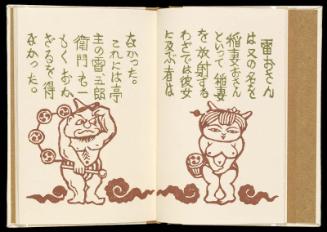 雷おさん
は又の名を
稲妻おさん
といって 稲妻
を放射する
わざでは彼女
に及ぶ者は
なかった。
これには亭
主の雷五郎
衛門も一
もくおか
ざるを得
なかった。